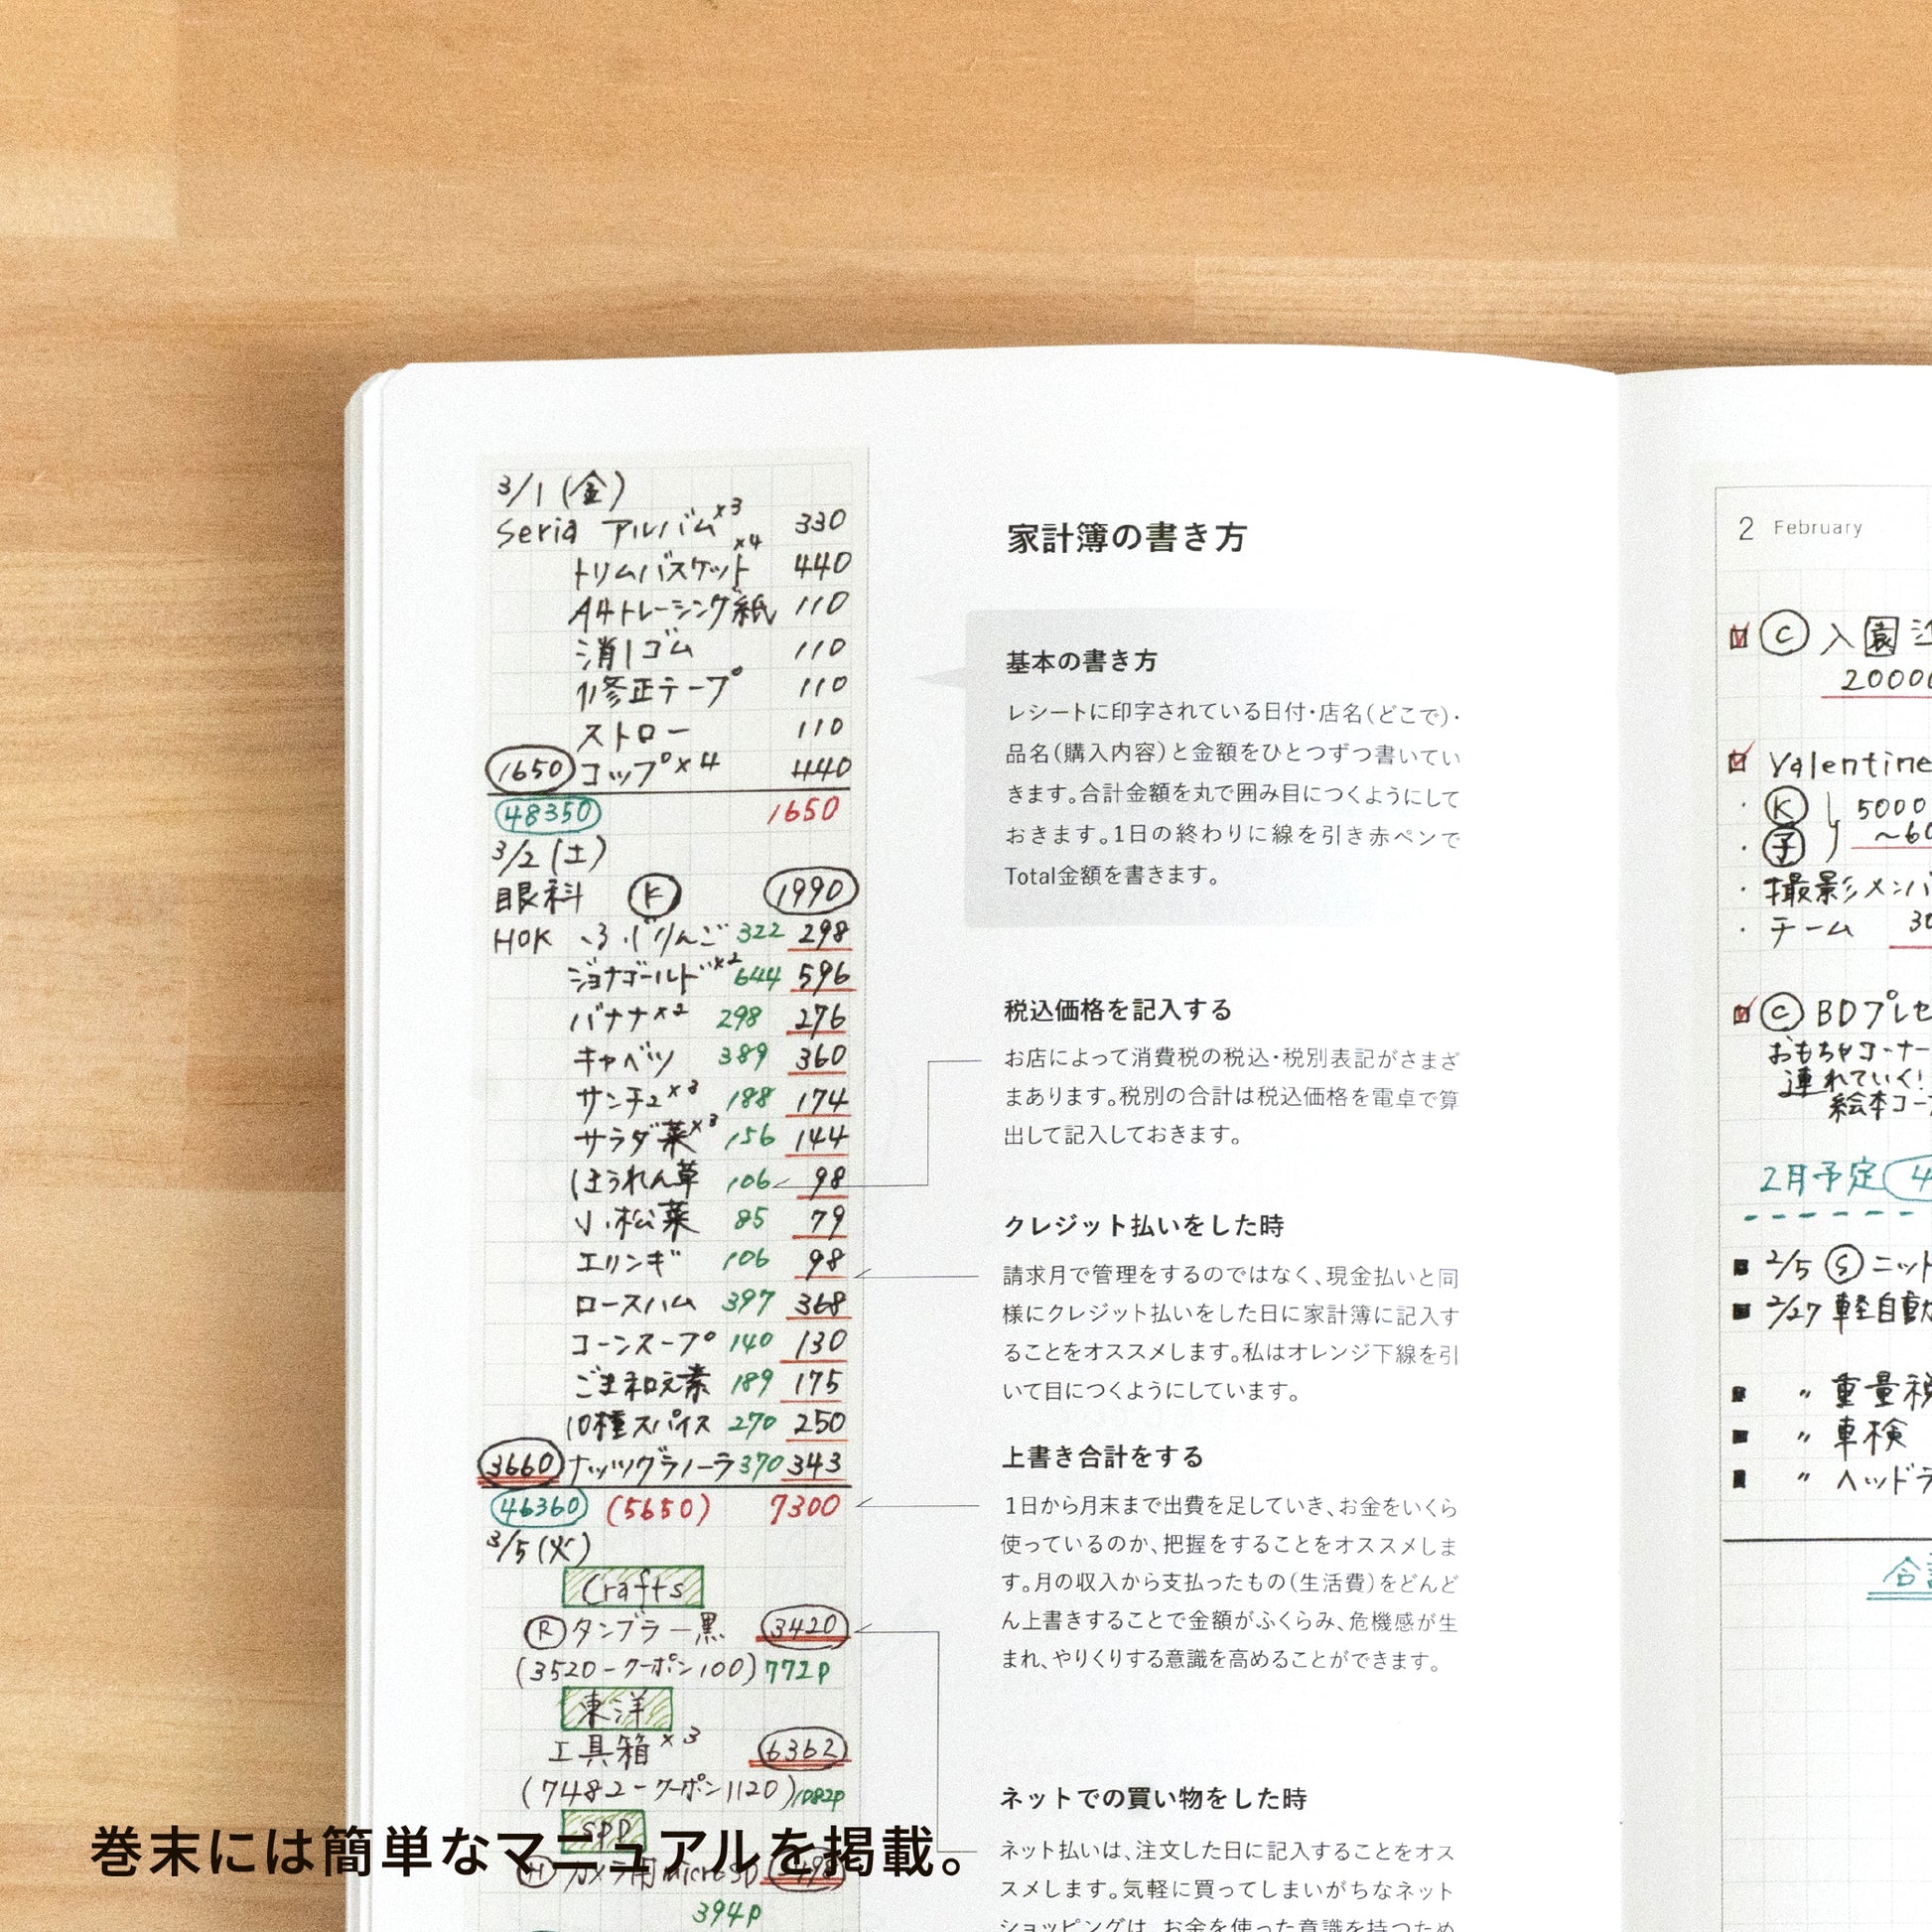 3/1(金)
Seria アルバム×3 330
トリムバスケット×4 440
A4トレーシング紙 110
消しゴム 110
修正テープ 110
ストロー 110
1650 コップ×4 440
48350 1650
3/2(土)
眼科 K 1990
HOK ふじりんご 322 298
ジョナゴールド×2 644 596
バナナ×2 298 276
キャベツ 389 360
サンチュ×3 188 174
サラダ菜×3 156 144
ほうれん草 106 98
小松菜 85 79
エリンギ 106 98
ロースハム 397 368
コーンスープ 140 130
ごま和え素 189 175
10種スパイス 270 250
3660 ナッツグラノーラ 370 343
46360 (5650) 7300
3/5(火)
Crafts
R タンブラー黒 3420
(3520-クーポン100) 772P
東洋
工具箱×3 6362
(7482-クーポン1120) 1082P
SPD
H カメラ用microSD
394P
家計簿の書き方
基本の書き方
レシートに印字されている日付・店名(どこで)・
品名(購入内容)と金額をひとつずつ書いてい
きます。合計金額を丸で囲み目につくようにして
おきます。1日の終わりに線を引き赤ペンで
Total金額を書きます。
税込価格を記入する
お店によって消費税の税込・税別表記がさまざ
まあります。税別の合計は税込価格を電卓で算
出して記入しておきます。
クレジット払いをした時
請求月で管理をするのではなく、現金払いと同
様にクレジット払いをした日に家計簿に記入す
ることをオススメします。私はオレンジ下線を引
いて目につくようにしています。
上書き合計をする
1日から月末まで出費を足していき、お金をいくら
使っているのか、把握をすることをオススメしま
す。月の収入から支払ったもの(生活費)をどんど
ん上書きすることで金額がふくらみ、危機感が生
まれ、やりくりする意識を高めることができます。
ネットでの買い物をした時
ネット払いは、注文した日に記入することをオス
スメします。気軽に買ってしまいがちなネット
ショッピングは、お金を使った意識を持つため
2 February
C 入園
20000
Valentine
K 5000
子 ~60
・撮影メンバ
・チーム 30
C BDプレゼ
おもちゃコーナー
連れていく!
絵本コー
2月予定 4
2/5 S ニット
2/27 軽自動
〃 重量税
〃 車検
〃 ヘッドラ
合計
巻末には簡単なマニュアルを掲載。